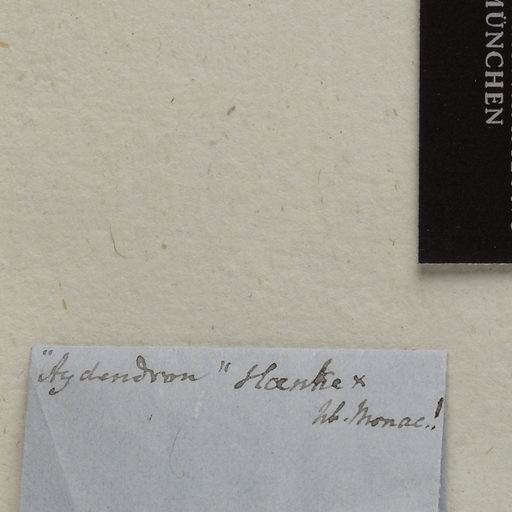 MÜNCHEN
"Aydendron" Hænke x
hb. Monac.!